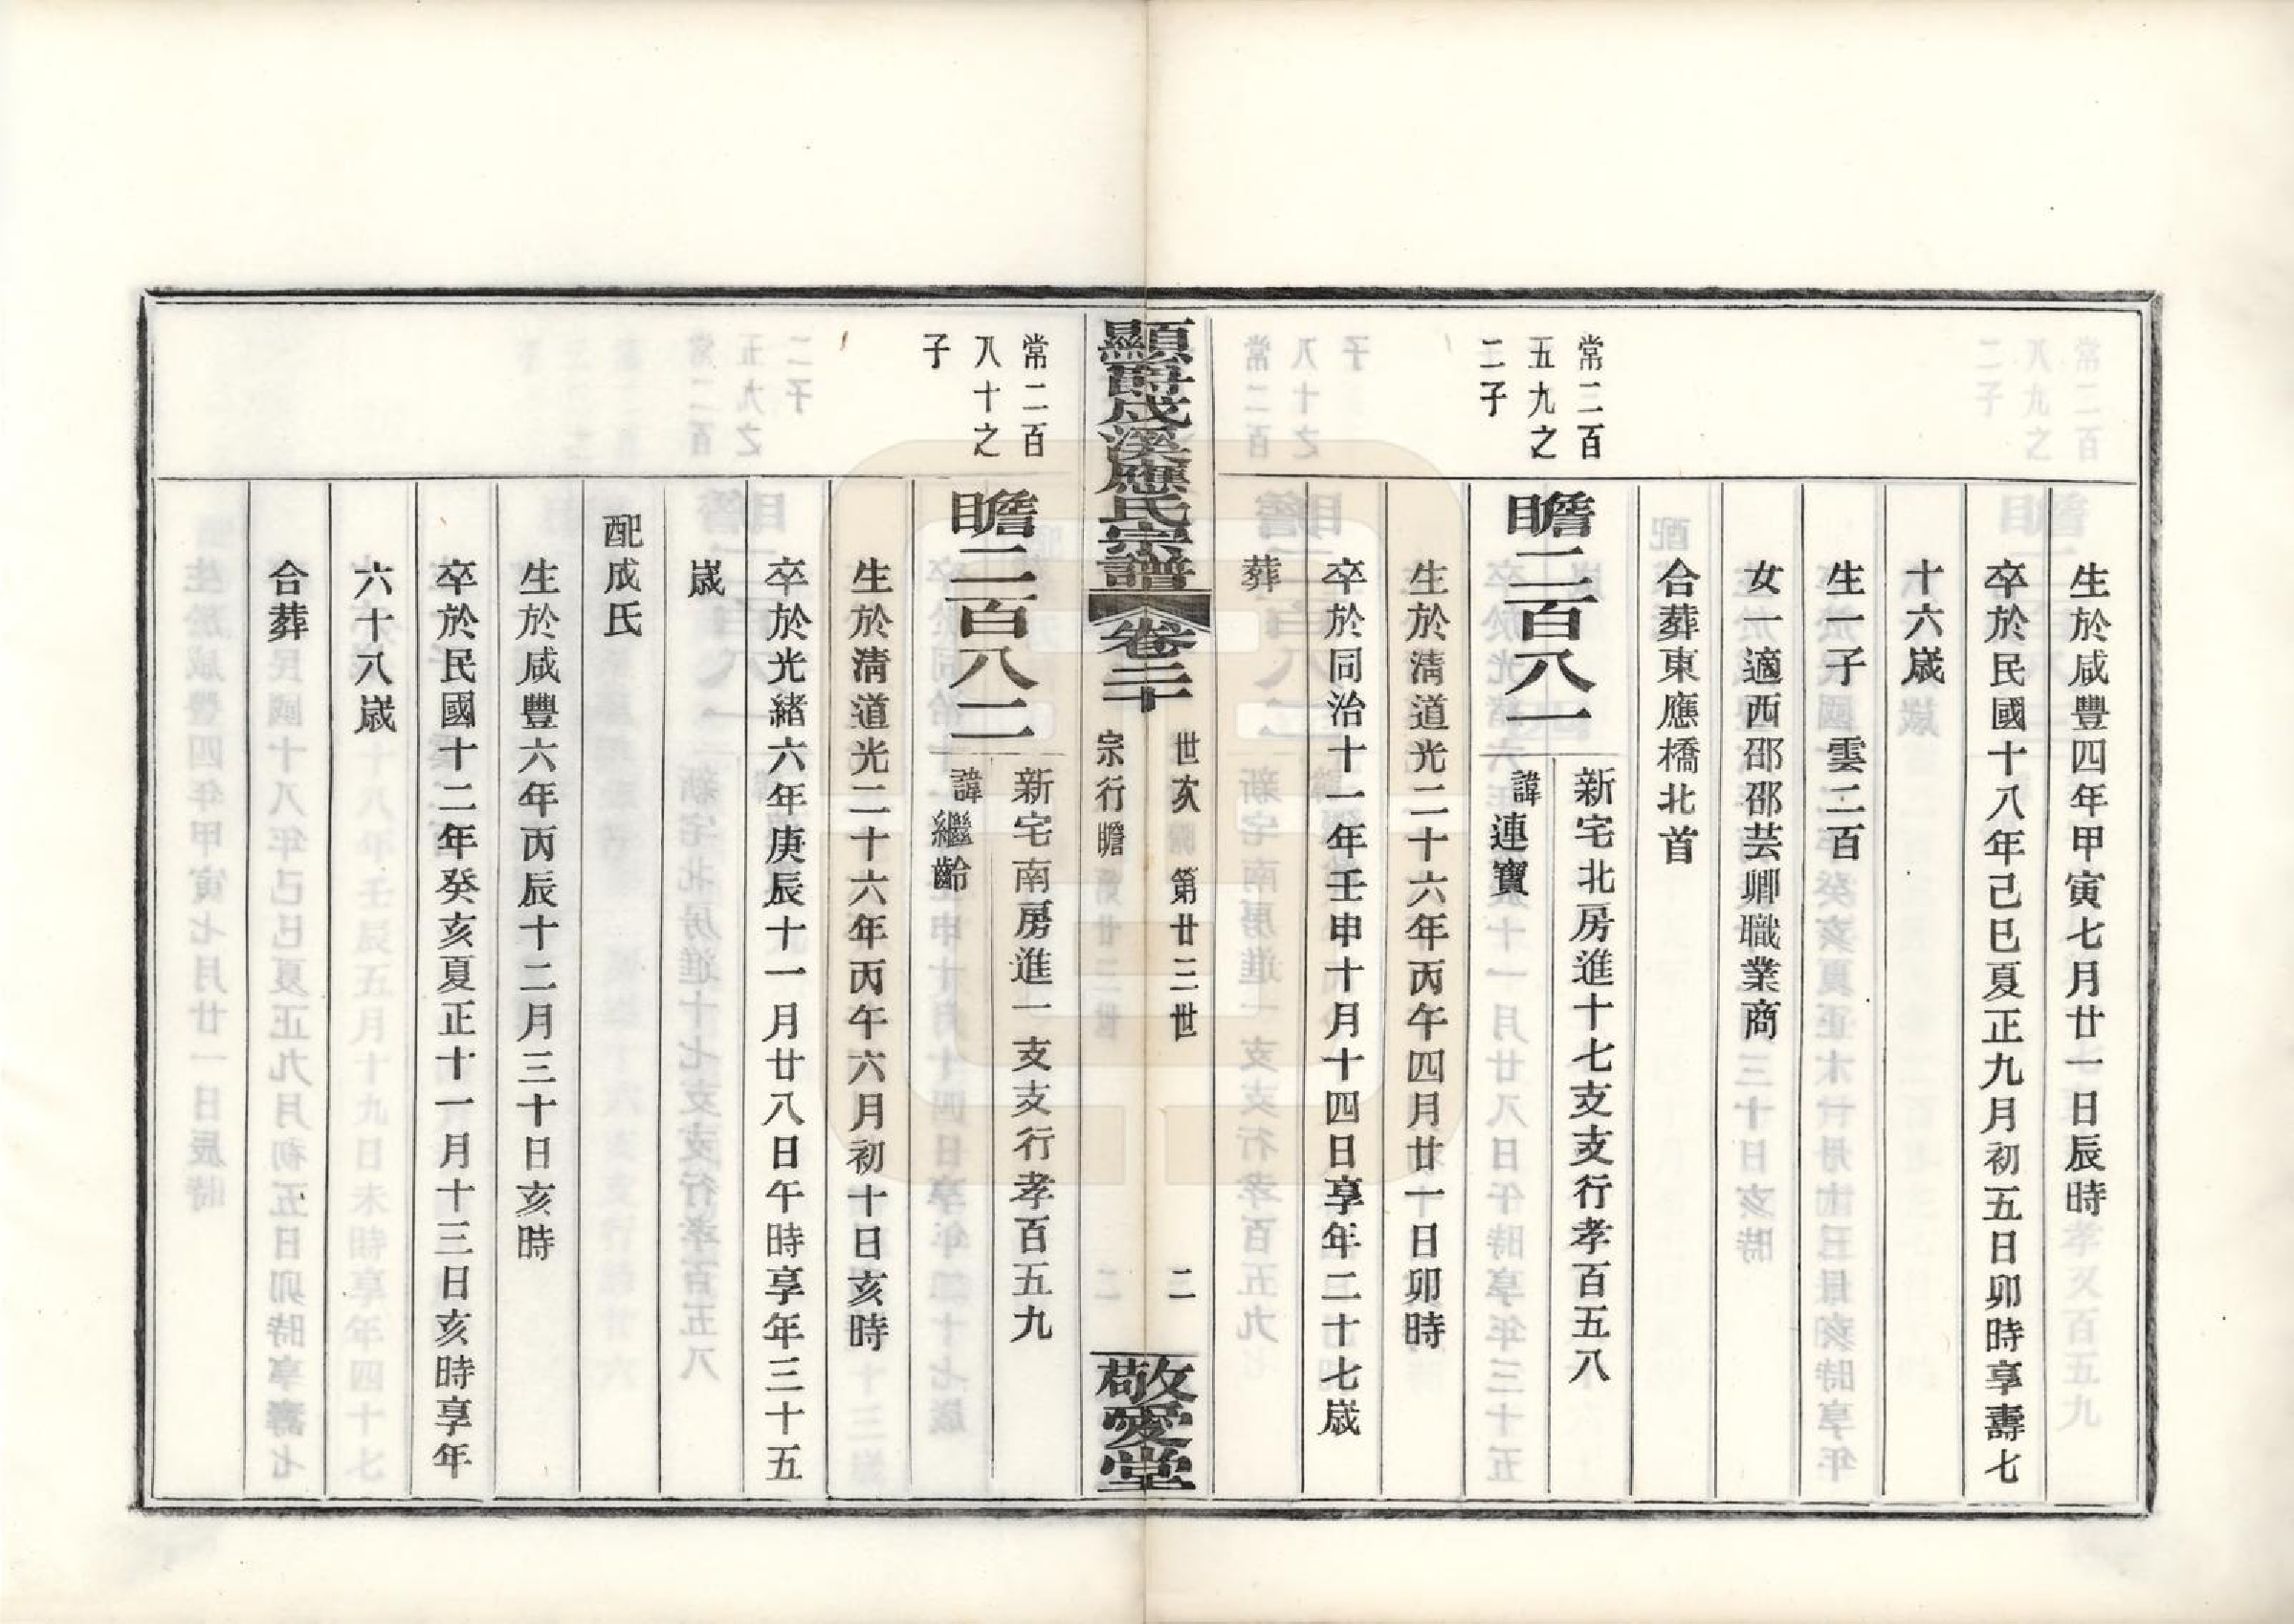 生於咸豐四年甲寅七月廿一日辰時
卒於民國十八年己巳夏正九月初五日卯時享壽七
十六歲
生一子　雲二百
女一適西邵邵芸卿職業商
合葬東應橋北首
常二百
五九之
二子
瞻二百八一
新宅北房進十七支支行孝百五八
諱連寶
生於清道光二十六年丙午四月廿一日卯時
卒於同治十一年壬申十月十四日享年二十七歲
葬
顯爵戍溪應氏宗譜
卷二十
世次　第廿三世
宗行瞻
二
敬愛堂
常二百
八十之
子
瞻二百八二
新宅南房進一支支行孝百五九
諱繼齡
生於清道光二十六年丙午六月初十日亥時
卒於光緒六年庚辰十一月廿八日午時享年三十五
歲
配成氏
生於咸豐六年丙辰十二月三十日亥時
卒於民國十二年癸亥夏正十一月十三日亥時享年
六十八歲
合葬